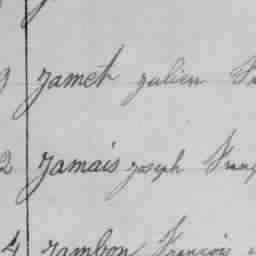 Jamet Julien
2 Jamais Joseph
4 Jambon François